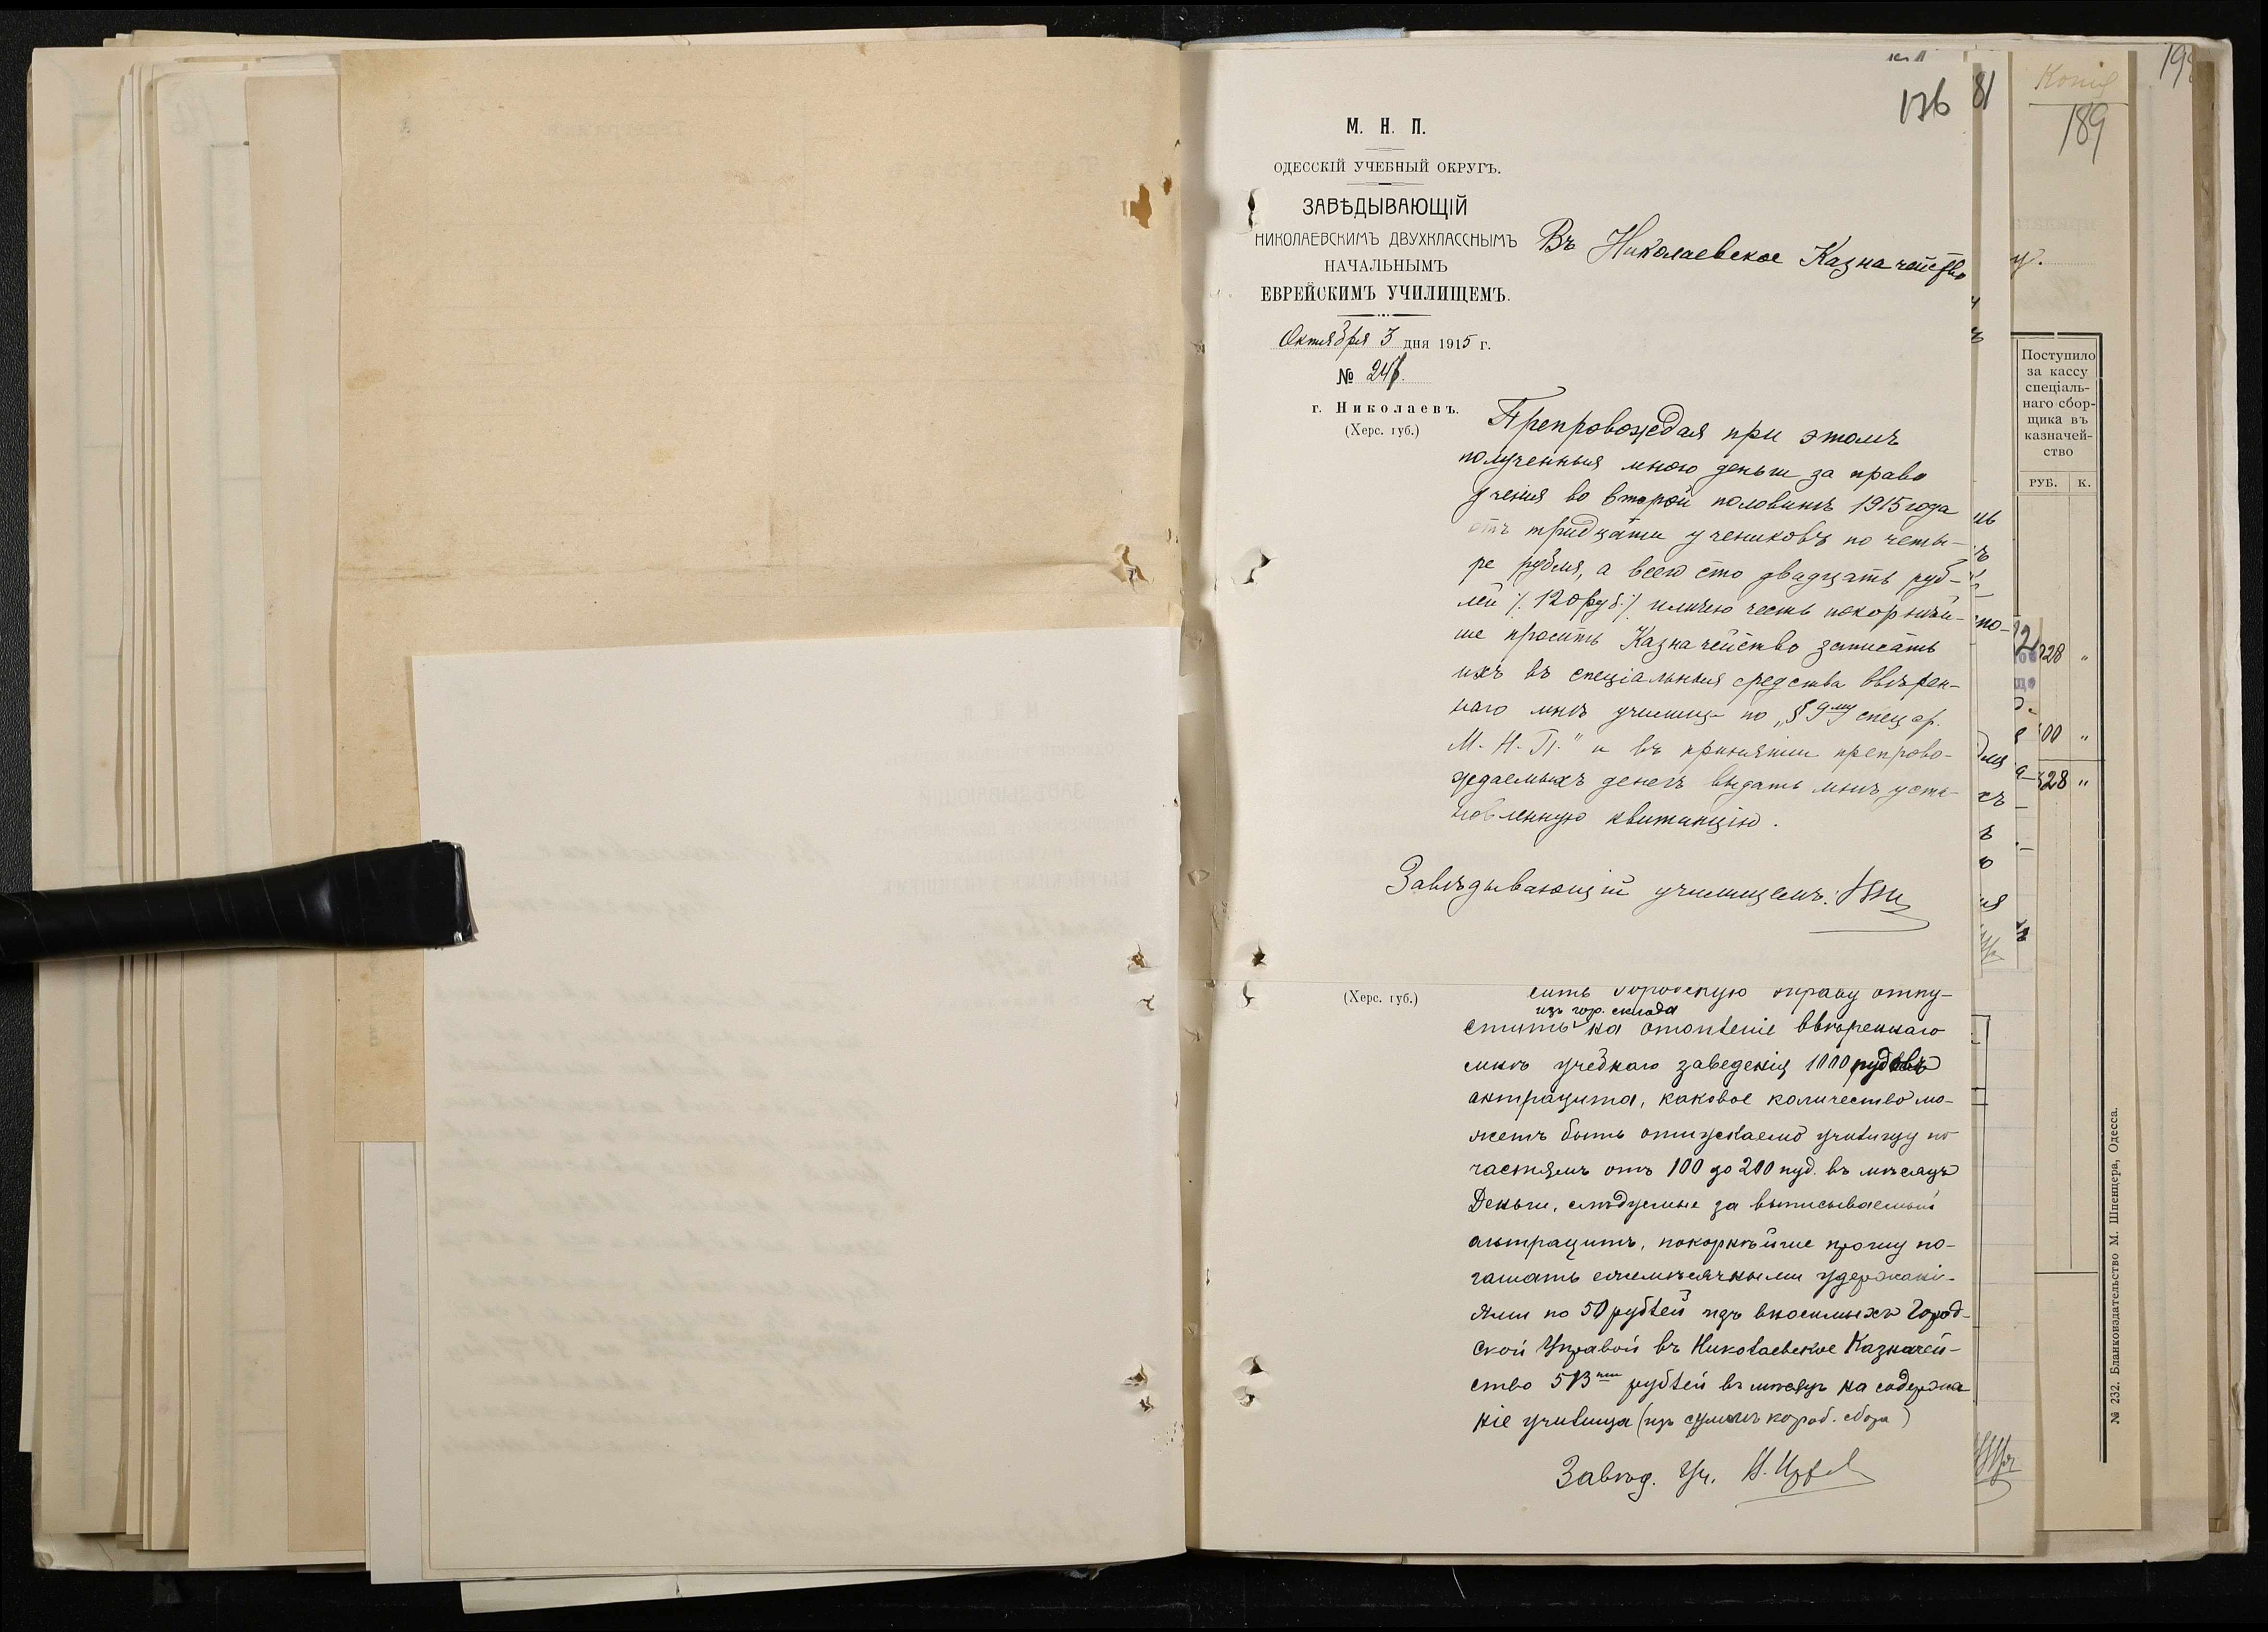 136
М. Н. П.
ОДЕССКІЙ УЧЕБНЫЙ ОКРУГЪ.
ЗАВѢДЫВАЮЩІЙ
НИКОЛАЕВСКИМЪ ДВУХКЛАССНЫМЪ
НАЧАЛЬНЫМЪ
ЕВРЕЙСКИМЪ УЧИЛИЩЕМЪ.
Октября 3 дня 1915 г.
№
г. Николаевъ.
(Херс. губ.)
Въ Николаевское Казначейство
Препровождая при этомъ
полученныя мною деньги за право
ученія во второй половинѣ 1915 года
отъ тридцати учениковъ по четы-
ре рубля, а всего сто двадцать руб-
лей /. 120 руб. ./ имѣю честь покорнѣй-
ше просить Казначейство записать
ихъ въ спеціальныя средства ввѣрен-
наго мнѣ училища по „§ 9му спец. ср.
М. Н. П." и въ принятіи препрово-
ждаемыхъ денегъ выдать мнѣ уста-
новленную квитанцію.
Завѣдывающій училищемъ:
(Херс. губ.)
сить городскую управу отпу-
стить из гор. склада на отопленіе ввѣреннаго
мнѣ учебнаго заведенія 1000 пудовъ
антрацита, каковое количество мо-
жетъ быть отпускаемо училищу по
частямъ отъ 100 до 200 пуд. въ мѣсяцъ
Деньги, слѣдуемые за выписываемый
антрацитъ, покорнѣйше прошу по-
гашать ежемѣсячными удержані-
ями по 50 рублей изъ вносимыхъ Город-
ской Управой въ Николаевское Казначей-
ство 513 рублей въ мѣсяцъ на содержа
ніе училища (изъ суммъ короб. сбора)
Завѣд. Уч.
81
Копія
189
Поступило
за кассу
спеціаль-
наго сбор-
щика въ
казначей-
ство
РУБ. К.
№ 232. Бланкоиздательство М. Шпенцера, Одесса.